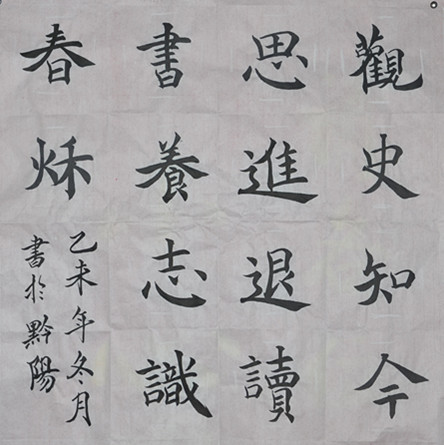 觀史知今
思進退讀
書養志識
春秌
乙未年冬月
書於黔陽